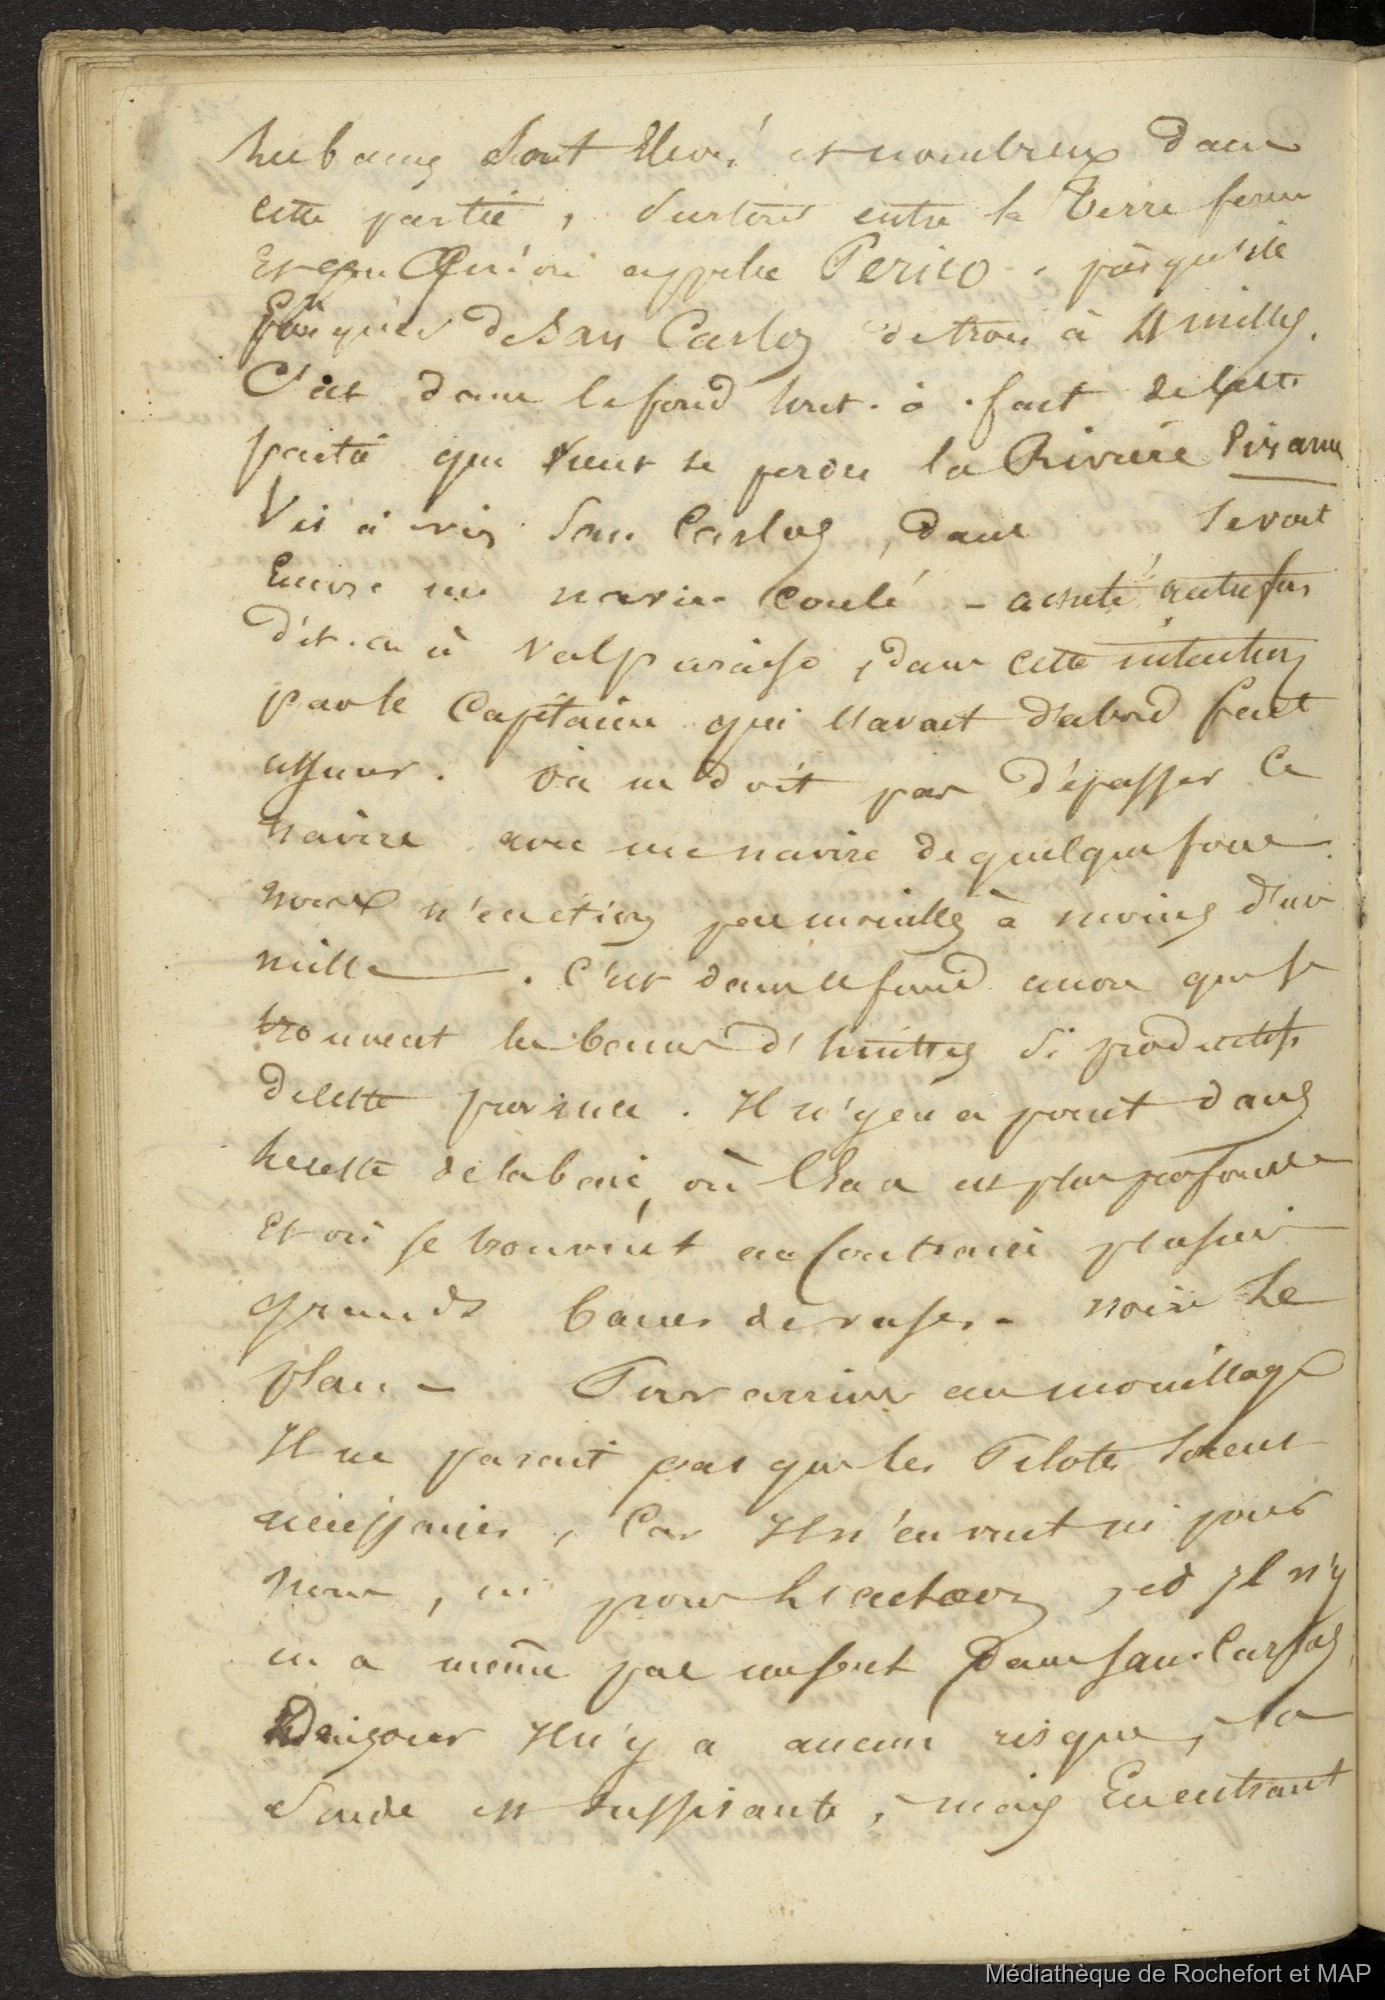 Les bancs sont élevés et nombreux dans
cette partie, surtout entre la Terre ferme
et Qu'on appelle Perico. jusqu'ile
jusqu'es de San Carlos de trois à 4 milles.
C'est dans le fond tout. à . fait de cette
partie que vient se perdre la Rivière
Vis à vis San Carlos, dans se voit
Encore un navire coulé – acheté autrefois
dit. on à Valparaiso, dans cette intention
par le Capitaine qui l'avait d'abord fait
assurer. On ne doit pas dépasser Ce
navire avec un navire de quelque force
nous n'en étions pas mouillés à moins d'un
mille. C'est dans ce fond encore que se
trouvent les bancs d'huitres si productifs
de cette province. Il n'y en a point dans
le reste de la baie, où l'Eau est plus profonde
et où se trouvent au Contraire plusieurs
grands bancs de vases. voir Le
plan – Pour arriver au mouillage
Il ne parait pas que les Pilotes soient
nécessaires, Car Il n'en vint ni pour
nous, ni pour les autres, et Il n'y
en a même pas un seul dans San. Carlos
Il n'y a aucun risque, la
Sonde est suffisante, mais En entrant
Médiathèque de Rochefort et MAP